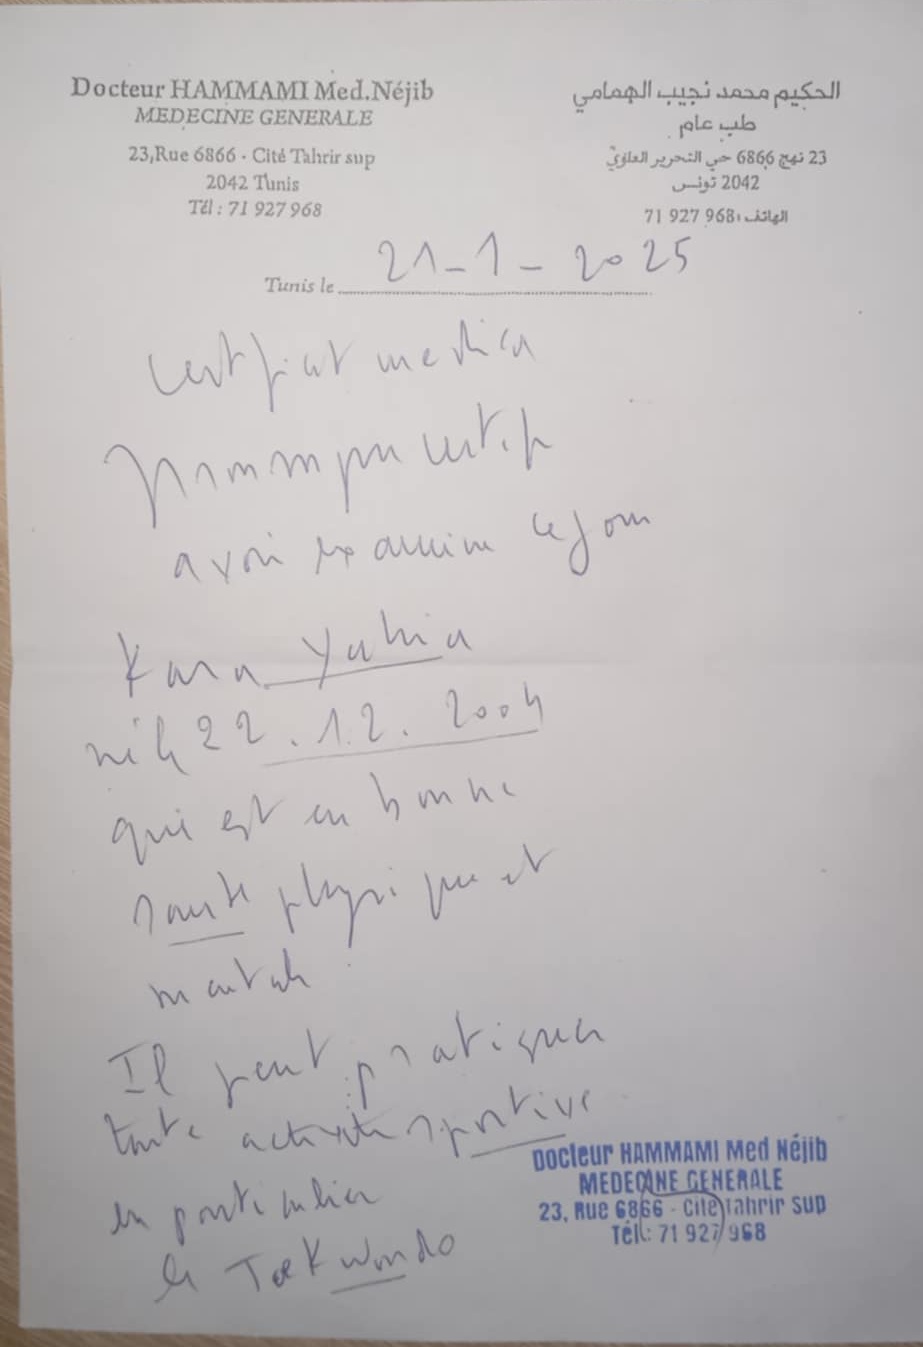 Docteur HAMMAMI Med.Néjib
MEDECINE GENERALE
23,Rue 6866 - Cité Tahrir sup
2042 Tunis
Tél : 71 927 968
الحكيم محمد نجيب الهمامي
طب عام
23 نهج 6866 حي التحرير العلوي
2042 تونس
الهاتف : 71 927 968
Tunis le 21-1-2025
Certificat medical
avoir examine ce jour
Kara Yahia
né le 22.12.2004
qui est en bonne
sante physique et
mentale
Il peut pratiquer
toute activite sportive
en particulier
le Taekwondo
Docteur HAMMAMI Med Néjib
MEDECINE GENERALE
23, Rue 6866 - Cité Tahrir sup
Tél: 71 927 968